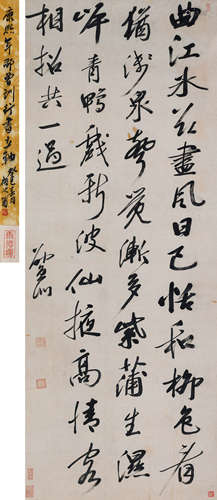 曲江冰欲盡風日已恬和柳色看
猶淺泉聲覺漸多紫蒲生濕
岸青鴨戲新波仙掖高情客
相招共一過
康熙年 曾訓行書立軸